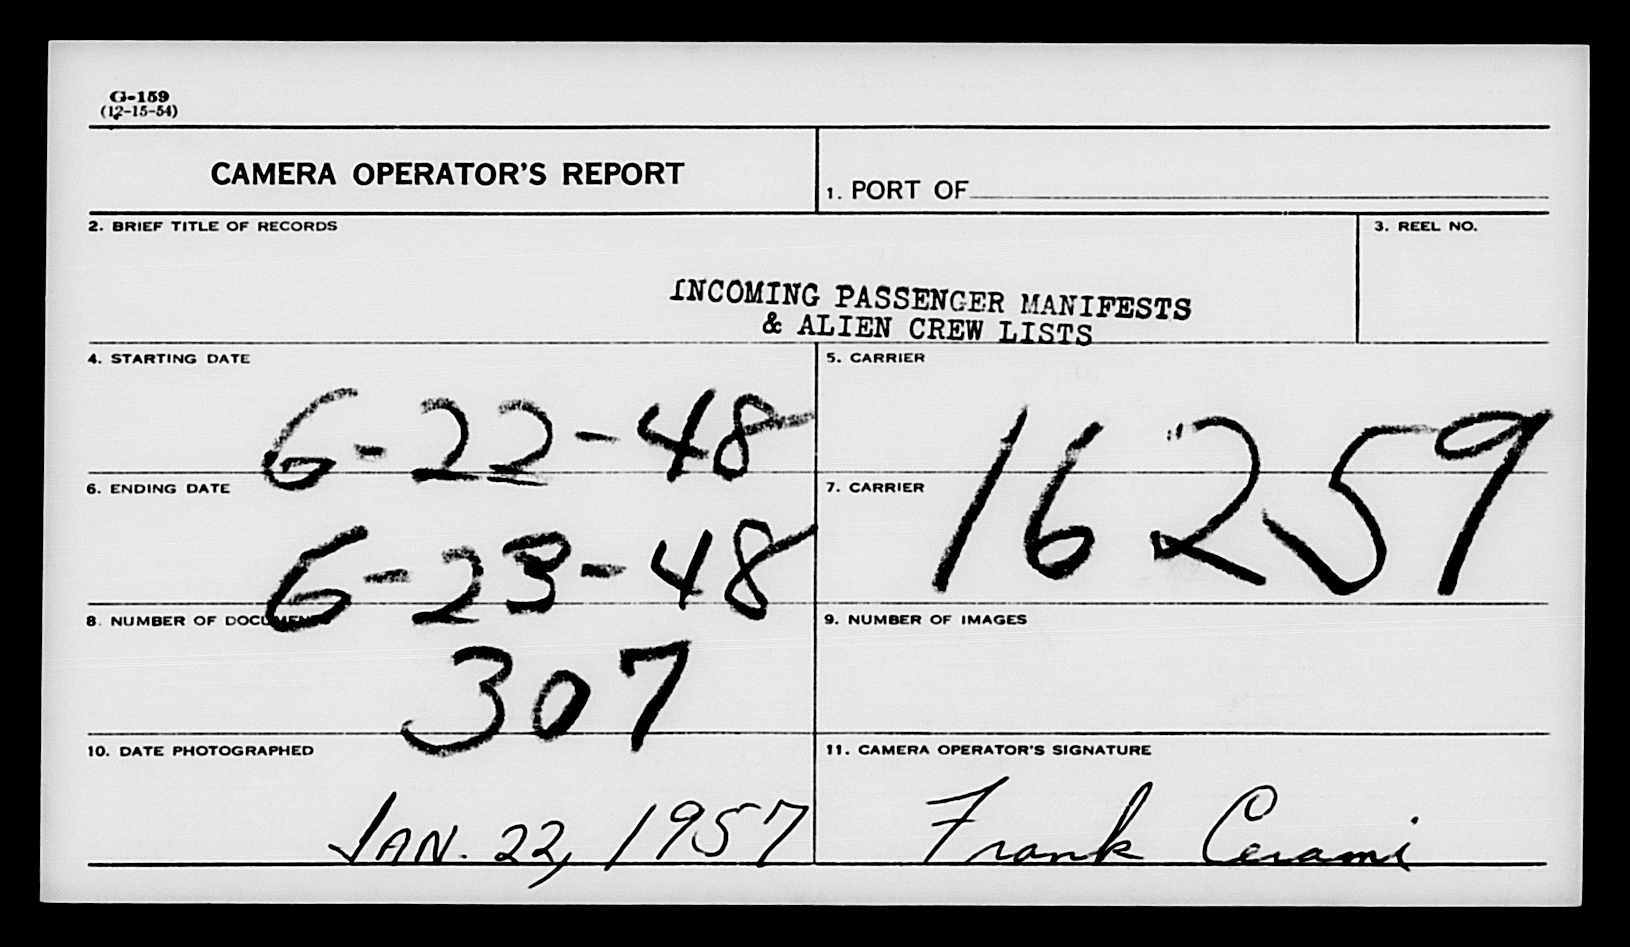 G-159
(12-15-54)
CAMERA OPERATOR'S REPORT
1. PORT OF
2. BRIEF TITLE OF RECORDS
3. REEL NO.
INCOMING PASSENGER MANIFESTS
& ALIEN CREW LISTS
4. STARTING DATE
6-22-48
5. CARRIER
16259
6. ENDING DATE
6-23-48
7. CARRIER
8. NUMBER OF DOCUMENTS
307
9. NUMBER OF IMAGES
10. DATE PHOTOGRAPHED
JAN. 22, 1957
11. CAMERA OPERATOR'S SIGNATURE
Frank Cerami